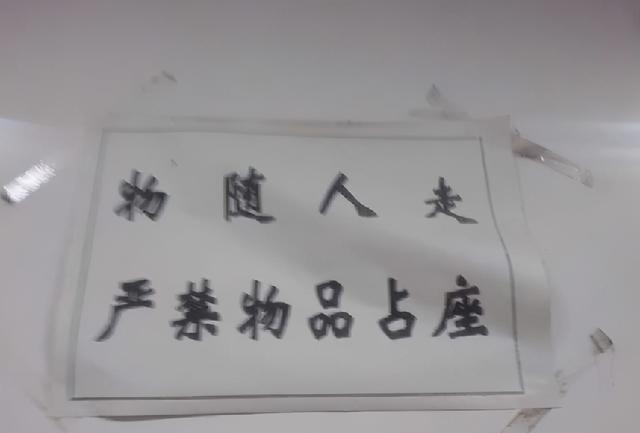 物随人走
严禁物品占座